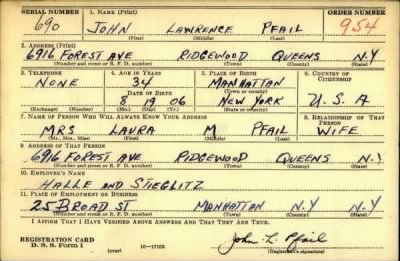 SERIAL NUMBER 1. NAME (Print) ORDER NUMBER
690 JOHN LAWRENCE PFAIL 954
(First) (Middle) (Last)
2. ADDRESS (Print)
6916 FOREST AVE RIDGEWOOD QUEENS N.Y
(Number and street or R. F. D. number) (Town) (County) (State)
3. TELEPHONE 4. AGE IN YEARS 5. PLACE OF BIRTH 6. COUNTRY OF CITIZENSHIP
NONE 34 MANHATTAN
DATE OF BIRTH (Town or county)
8 19 06 NEW YORK U.S.A
(Exchange) (Number) (Mo.) (Day) (Yr.) (State or country)
7. NAME OF PERSON WHO WILL ALWAYS KNOW YOUR ADDRESS 8. RELATIONSHIP OF THAT PERSON
MRS LAURA M PFAIL WIFE
(Mr., Mrs., Miss) (First) (Middle) (Last)
9. ADDRESS OF THAT PERSON
6916 FOREST AVE RIDGEWOOD QUEENS N.Y.
(Number and street or R. F. D. number) (Town) (County) (State)
10. EMPLOYER'S NAME
HALLE AND STIEGLITZ
11. PLACE OF EMPLOYMENT OR BUSINESS
25 BROAD ST MANHATTAN N.Y N.Y.
(Number and street or R. F. D. number) (Town) (County) (State)
I AFFIRM THAT I HAVE VERIFIED ABOVE ANSWERS AND THAT THEY ARE TRUE.
REGISTRATION CARD
D. S. S. FORM 1 (over) 16—17105 John L. Pfail
(Registrant's signature)